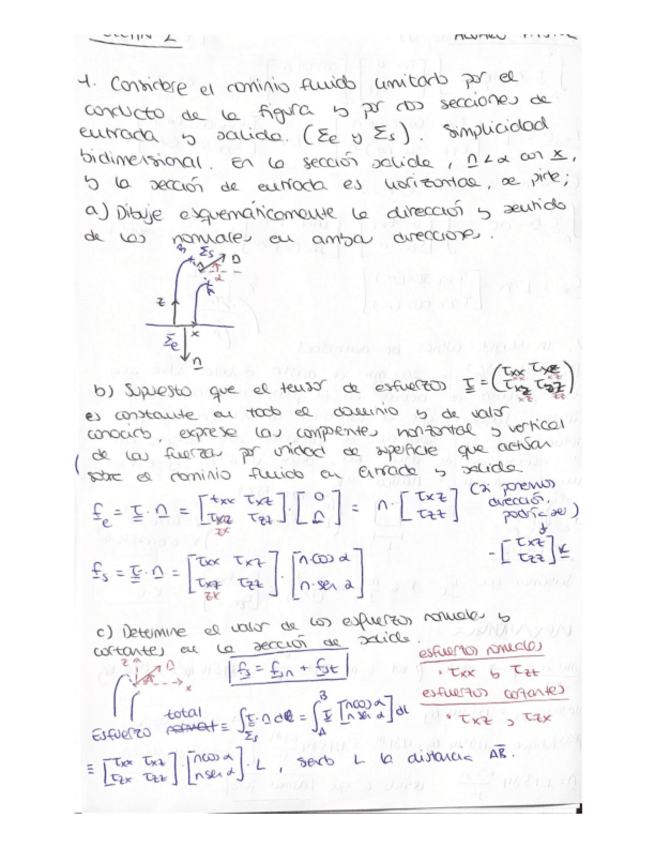 1. Considere el dominio fluido limitado por el
conducto de la figura y por dos secciones de
entrada y salida. (Σe y Σs). Simplicidad
bidimensional. En la sección salida, n∠α con x,
y la sección de entrada es horizontal, se pide;
a) Dibuje esquemáticamente la dirección y sentido
de las normales en ambas direcciones.
B Σs n
α
A
z
x
Σe
n
b) Supuesto que el tensor de esfuerzo τ = (τxx τxz
τxz τzz)
es constante en todo el dominio y de valor
conocido, exprese las componentes horizontal y vertical
de la fuerza por unidad de superficie que actúan
sobre el dominio fluido en entrada y salida
fe = τ · n = [τxx τxz τxz τzz] · [0 n] = n · [τxz τzz]
(si ponemos dirección, podría ser)
- [τxz τzz]
fs = τ · n = [τxx τxz τxz τzz] · [n·cos α n·sen α]
zx
c) Determine el valor de los esfuerzos normales y
cortantes en la sección de salida.
z n
x
fs = fsn + fst
esfuerzos normales
· τxx y τzz
esfuerzos cortantes
· τxz y τzx
Esfuerzo total ≡ ∫Σs τ·n dl = ∫A B τ [n cos α n sen α] dl
≡ [τxx τxz τzx τzz] · [n cos α n sen α] · L , siendo L la distancia AB.